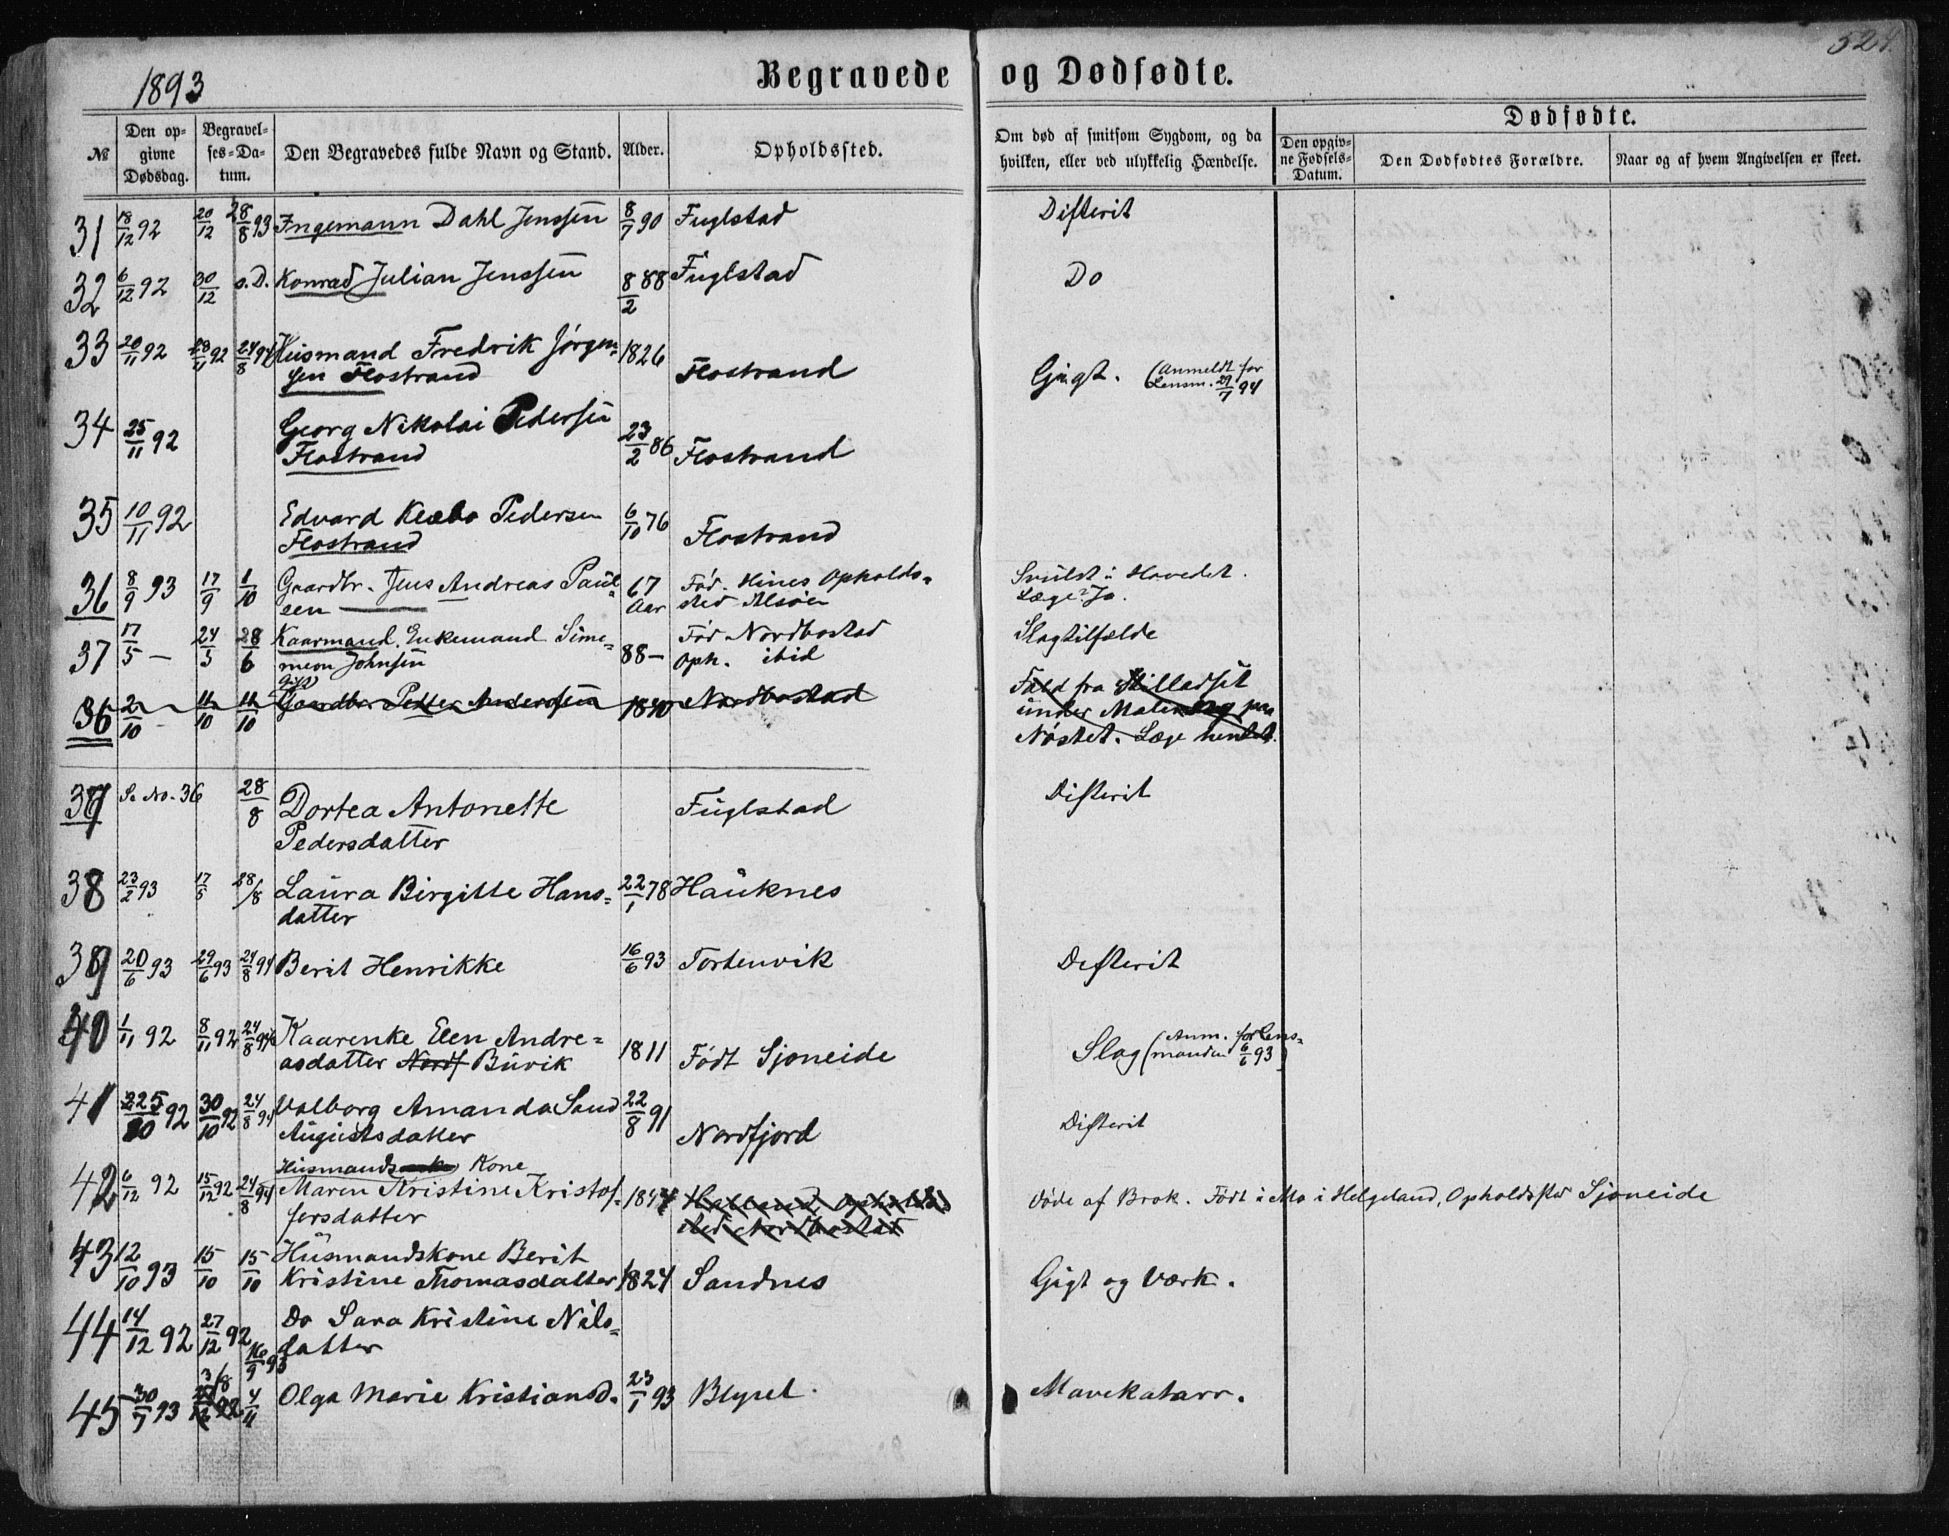 1893
Begravede og Dødfødte.
524.
№
Den opgivne Dødsdag.
Begravelses-Datum.
Den Begravedes fulde Navn og Stand.
Alder.
Opholdssted.
Om død af smitsom Sygdom, og da hvilken, eller ved ulykkelig Hændelse.
Dødfødte.
Den opgivne Fødsels-Datum.
Den Dødfødtes Forældre.
Naar og af hvem Angivelsen er skeet.
31 18/12 92 20/12 28/8 93 Ingemann Dahl Jenssen 8/7 90 Fuglstad Difterit
32 6/12 92 30/12 s.D. Konrad Julian Jenssen 8/2 88 Fuglstad Do
33 20/11 92 28/11 92 24/8 94 Husmand Fredrik Jørgen- 1826 Flostrand Gigt. (Anmeldt for
sen Flostrand Lensm. 29/7 94
34 25/11 92 Georg Nikolai Pedersen 23/2 86 Flostrand
Flostrand
35 10/11 92 Edvard Klæbo Pedersen 6/10 76 Flostrand
Flostrand
36 8/9 93 17/9 1/10 Gaardbr. Jens Andreas Paul- 67 Aar Fød. Hines Opholds- Svulst i Hovedet.
sen sted Alsøen Læge? Ja.
37 17/5 — 24/5 28/6 Kaarmand. Enkemand Sime- 88 — Fød Nordbostad Slagtilfælde
meon Johnsen Oph. ibid
36 2/10 — 11/10 11/10 Gift Gaardbr Petter Andersen 1840 Nordbostad Fald fra Stilladset
under Maling paa
Nøstet. Læge hentet.
37 Se No. 36 28/8 Dortea Antonette Fuglstad Difterit
Pedersdatter
38 23/2 93 17/5 28/8 Laura Birgitte Hans- 22/1 78 Hauknes
datter
39 20/6 93 29/6 93 24/8 94 Berit Henrikke 16/6 93 Tortenvik Difterit
40 1/11 92 8/11 92 24/8 94 Kaarenke Elen Andre- 1811 Født Sjoneide Slag (Anm. for Lens-
asdatter Nordf Buvik manden 6/6 93)
41 92 30/10 92 24/8 94 Valborg Amanda Sand 22/8 91 Nordfjord Difterit
Augustsdatter
Husmands Kone
42 6/12 92 15/12 92 24/8 94 Maren Kristine Kristof- Døde af Brok. Født i Mo i Helgeland, Opholdssted Sjoneide
fersdatter
43 12/10 93 15/10 15/10 Husmandskone Berit
Kristine Thomasdatter 1824 Sandnes Gigt og Værk.
44 14/12 92 27/12 92 16/9 93 Do Sara Kristine Nils-
datter
45 30/7 93 3/8 4/11 Olga Marie Kristiansd. 23/1 93 Blyset. Mavekatarr.